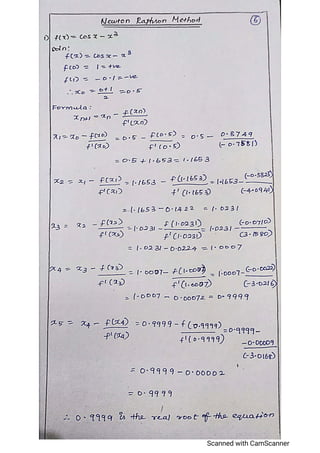 Newton Raphson Method
6
1) f(x) = cosx - x³
soln:
f(x) = cosx - x³
f(0) = 1 = +ve
f(1) = -0.1 = -ve
∴ x₀ = 0+1/2 = 0.5
Formula:
xₙ₊₁ = xₙ - f(xₙ)/f'(xₙ)
x₁ = x₀ - f(x₀)/f'(x₀) = 0.5 - f(0.5)/f'(0.5) = 0.5 - 0.8749/(-0.7581)
= 0.5 + 1.1653 = 1.1653
x₂ = x₁ - f(x₁)/f'(x₁) = 1.1653 - f(1.1653)/f'(1.1653) = 1.1653 - (-0.5825)/(-4.0940)
= 1.1653 - 0.1422 = 1.0231
x₃ = x₂ - f(x₂)/f'(x₂) = 1.0231 - f(1.0231)/f'(1.0231) = 1.0231 - (-0.0710)/(3.1580)
= 1.0231 - 0.0224 = 1.0007
x₄ = x₃ - f(x₃)/f'(x₃) = 1.0007 - f(1.0007)/f'(1.0007) = 1.0007 - (-0.0022)/(-3.0216)
= 1.0007 - 0.00072 = 0.9999
x₅ = x₄ - f(x₄)/f'(x₄) = 0.9999 - f(0.9999)/f'(0.9999) = 0.9999 - -0.00009/(-3.0168)
= 0.9999 - 0.00002
= 0.9999
∴ 0.9999 is the real root of the equation
Scanned with CamScanner